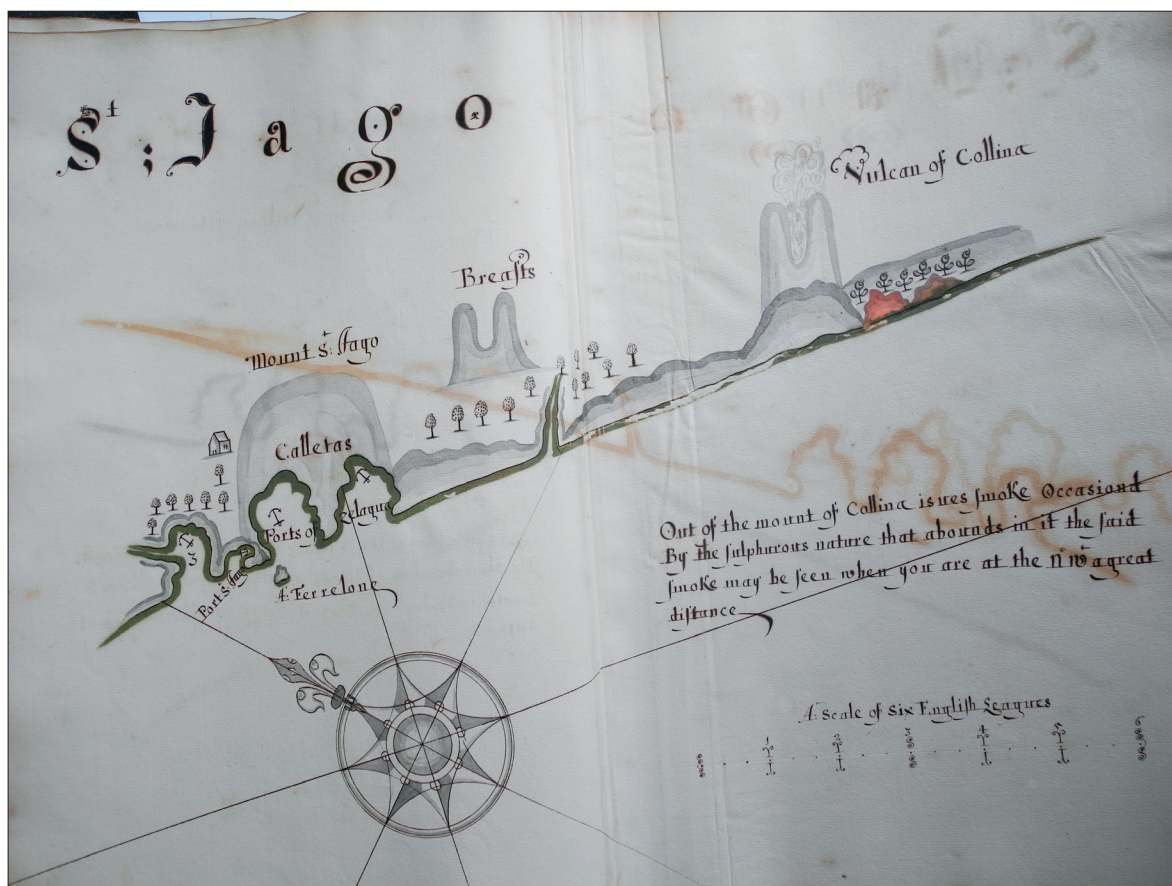 St; Jago
Vulcan of Collina
Breasts
Mount St: Jago
Calletas
Ports of Zelagua
3
Port St: Jago
A Ferrelone
Out of the mount of Collina isues smoke Occasiond
By the sulphurous nature that abounds in it the said
smoke may be seen when you are at the
a great
distance
A Scale of Six English Leagues